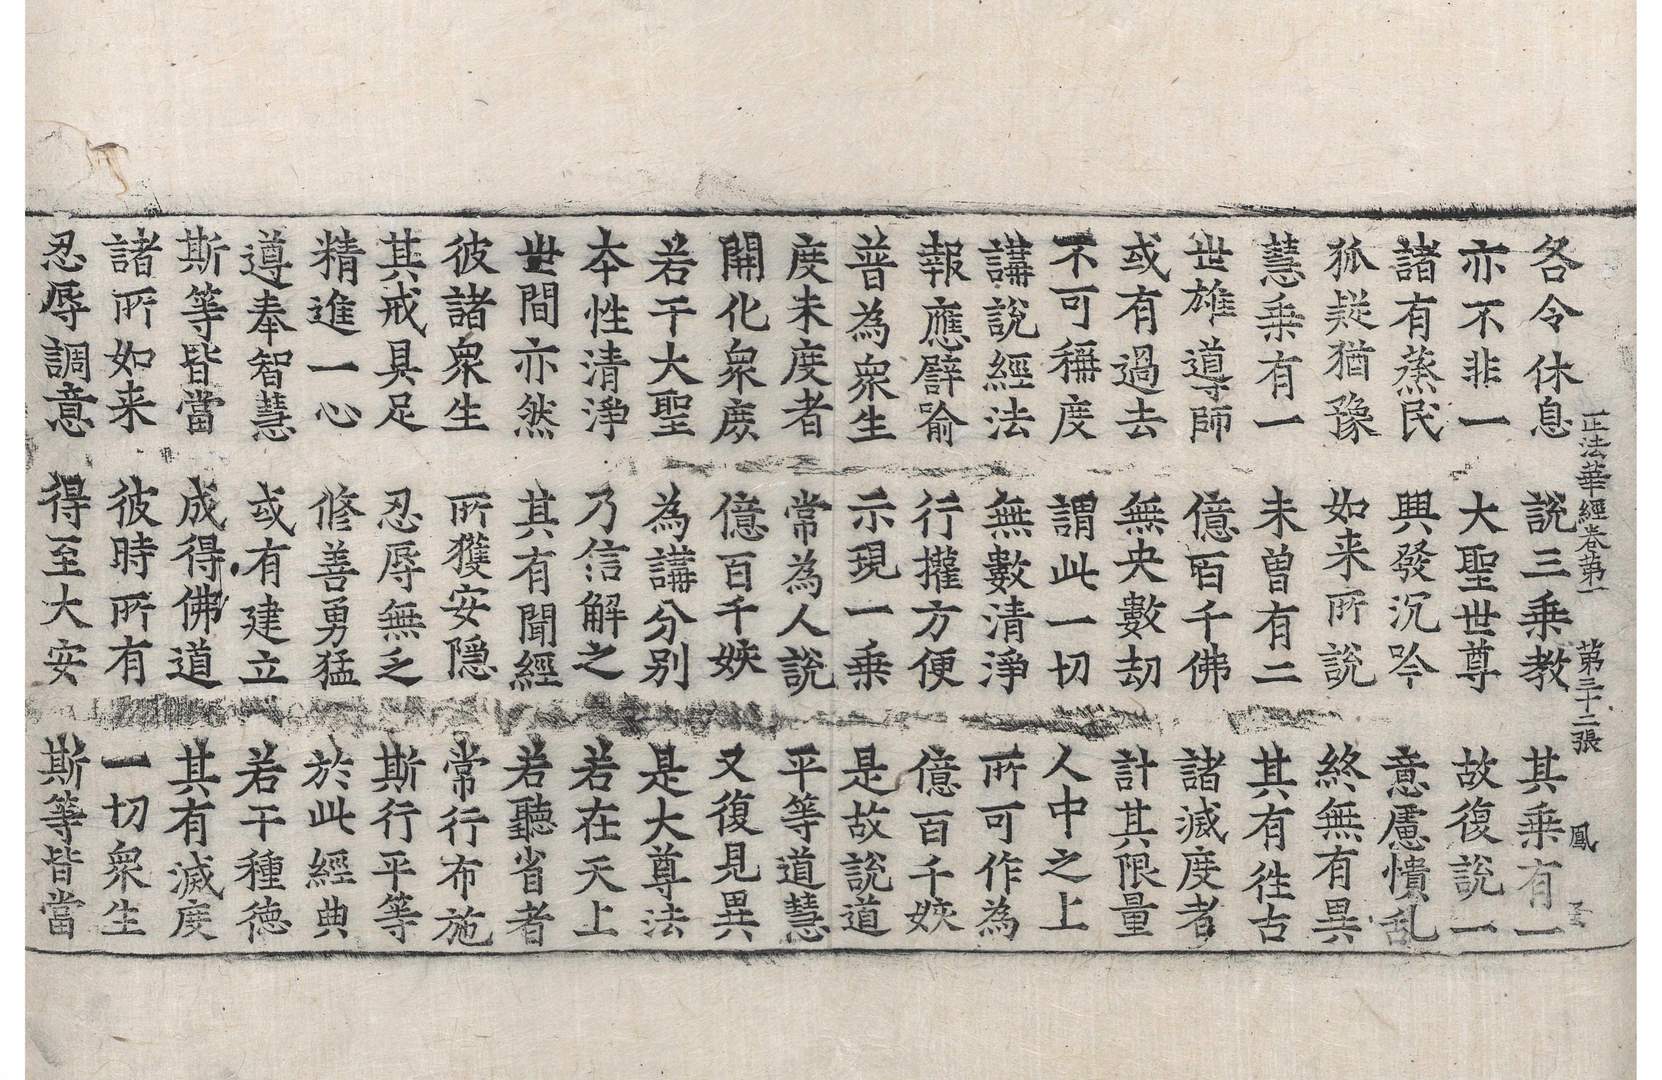 正法華經卷第一 第三十二張 鳳
各令休息 說三乘教 其乘有一
亦不非一 大聖世尊 故復說一
諸有蒸民 興發沉吟 意慮憒乱
狐疑猶豫 如来所說 終無有異
慧乗有一 未曽有二 其有徃古
世雄導師 億百千佛 諸滅度者
或有過去 無央數劫 計其限量
不可稱度 謂此一切 人中之上
講說經法 無數清淨 所可作為
報應譬喻 行權方便 億百千姟
普為眾生 示現一乗 是故說道
度未度者 常為人說 平等道慧
開化眾庻 億百千姟 又復見異
若干大聖 為講分别 是大尊法
本性清淨 乃信解之 若在天上
世間亦然 其有聞經 若聽省者
彼諸眾生 所獲安隠 常行布施
其戒具足 忍辱無乏 斯行平等
精進一心 修善勇猛 於此經典
遵奉智慧 或有建立 若干種德
斯等皆當 成得佛道 其有滅度
諸所如来 彼時所有 一切眾生
忍辱調意 得至大安 斯等皆當